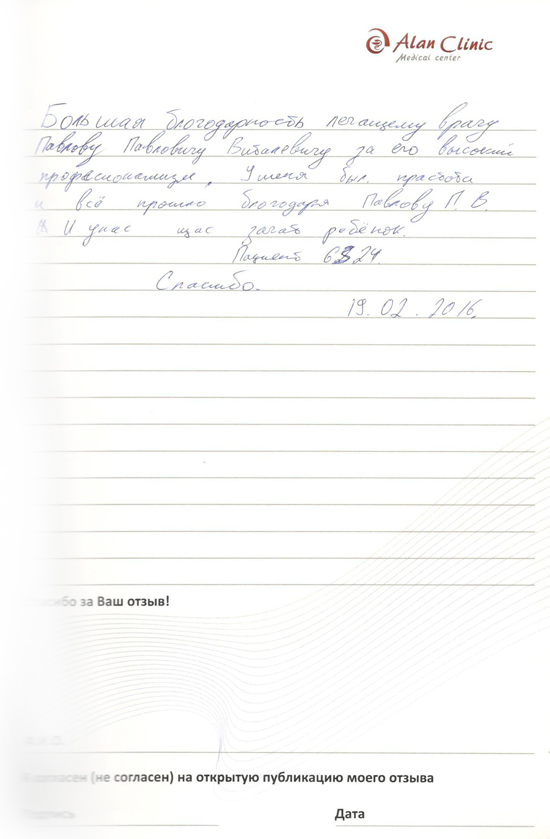 Alan Clinic
Medical center
Большая благодарность лечащему врачу
Павлову Павловичу Виталевичу за его высокий
профессионализм, У меня был простота
и всё прошло благодаря Павлову П. В.
И у нас щас зачат ребёнок.
Пациент 6324.
Спасибо.
19.02.2016.
Спасибо за Ваш отзыв!
Ф.И.О.
согласен (не согласен) на открытую публикацию моего отзыва
Подпись Дата